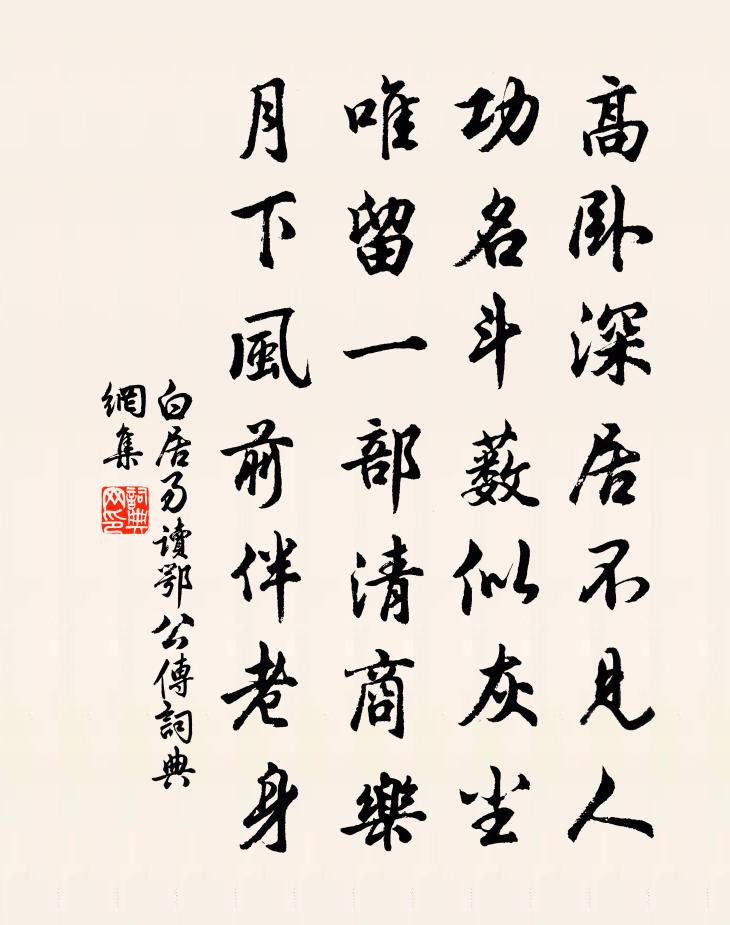 高臥深居不見人
功名斗藪似灰尘
唯留一部清商樂
月下風前伴老身
白居易讀鄂公傳詞典
網集
詞典
网印